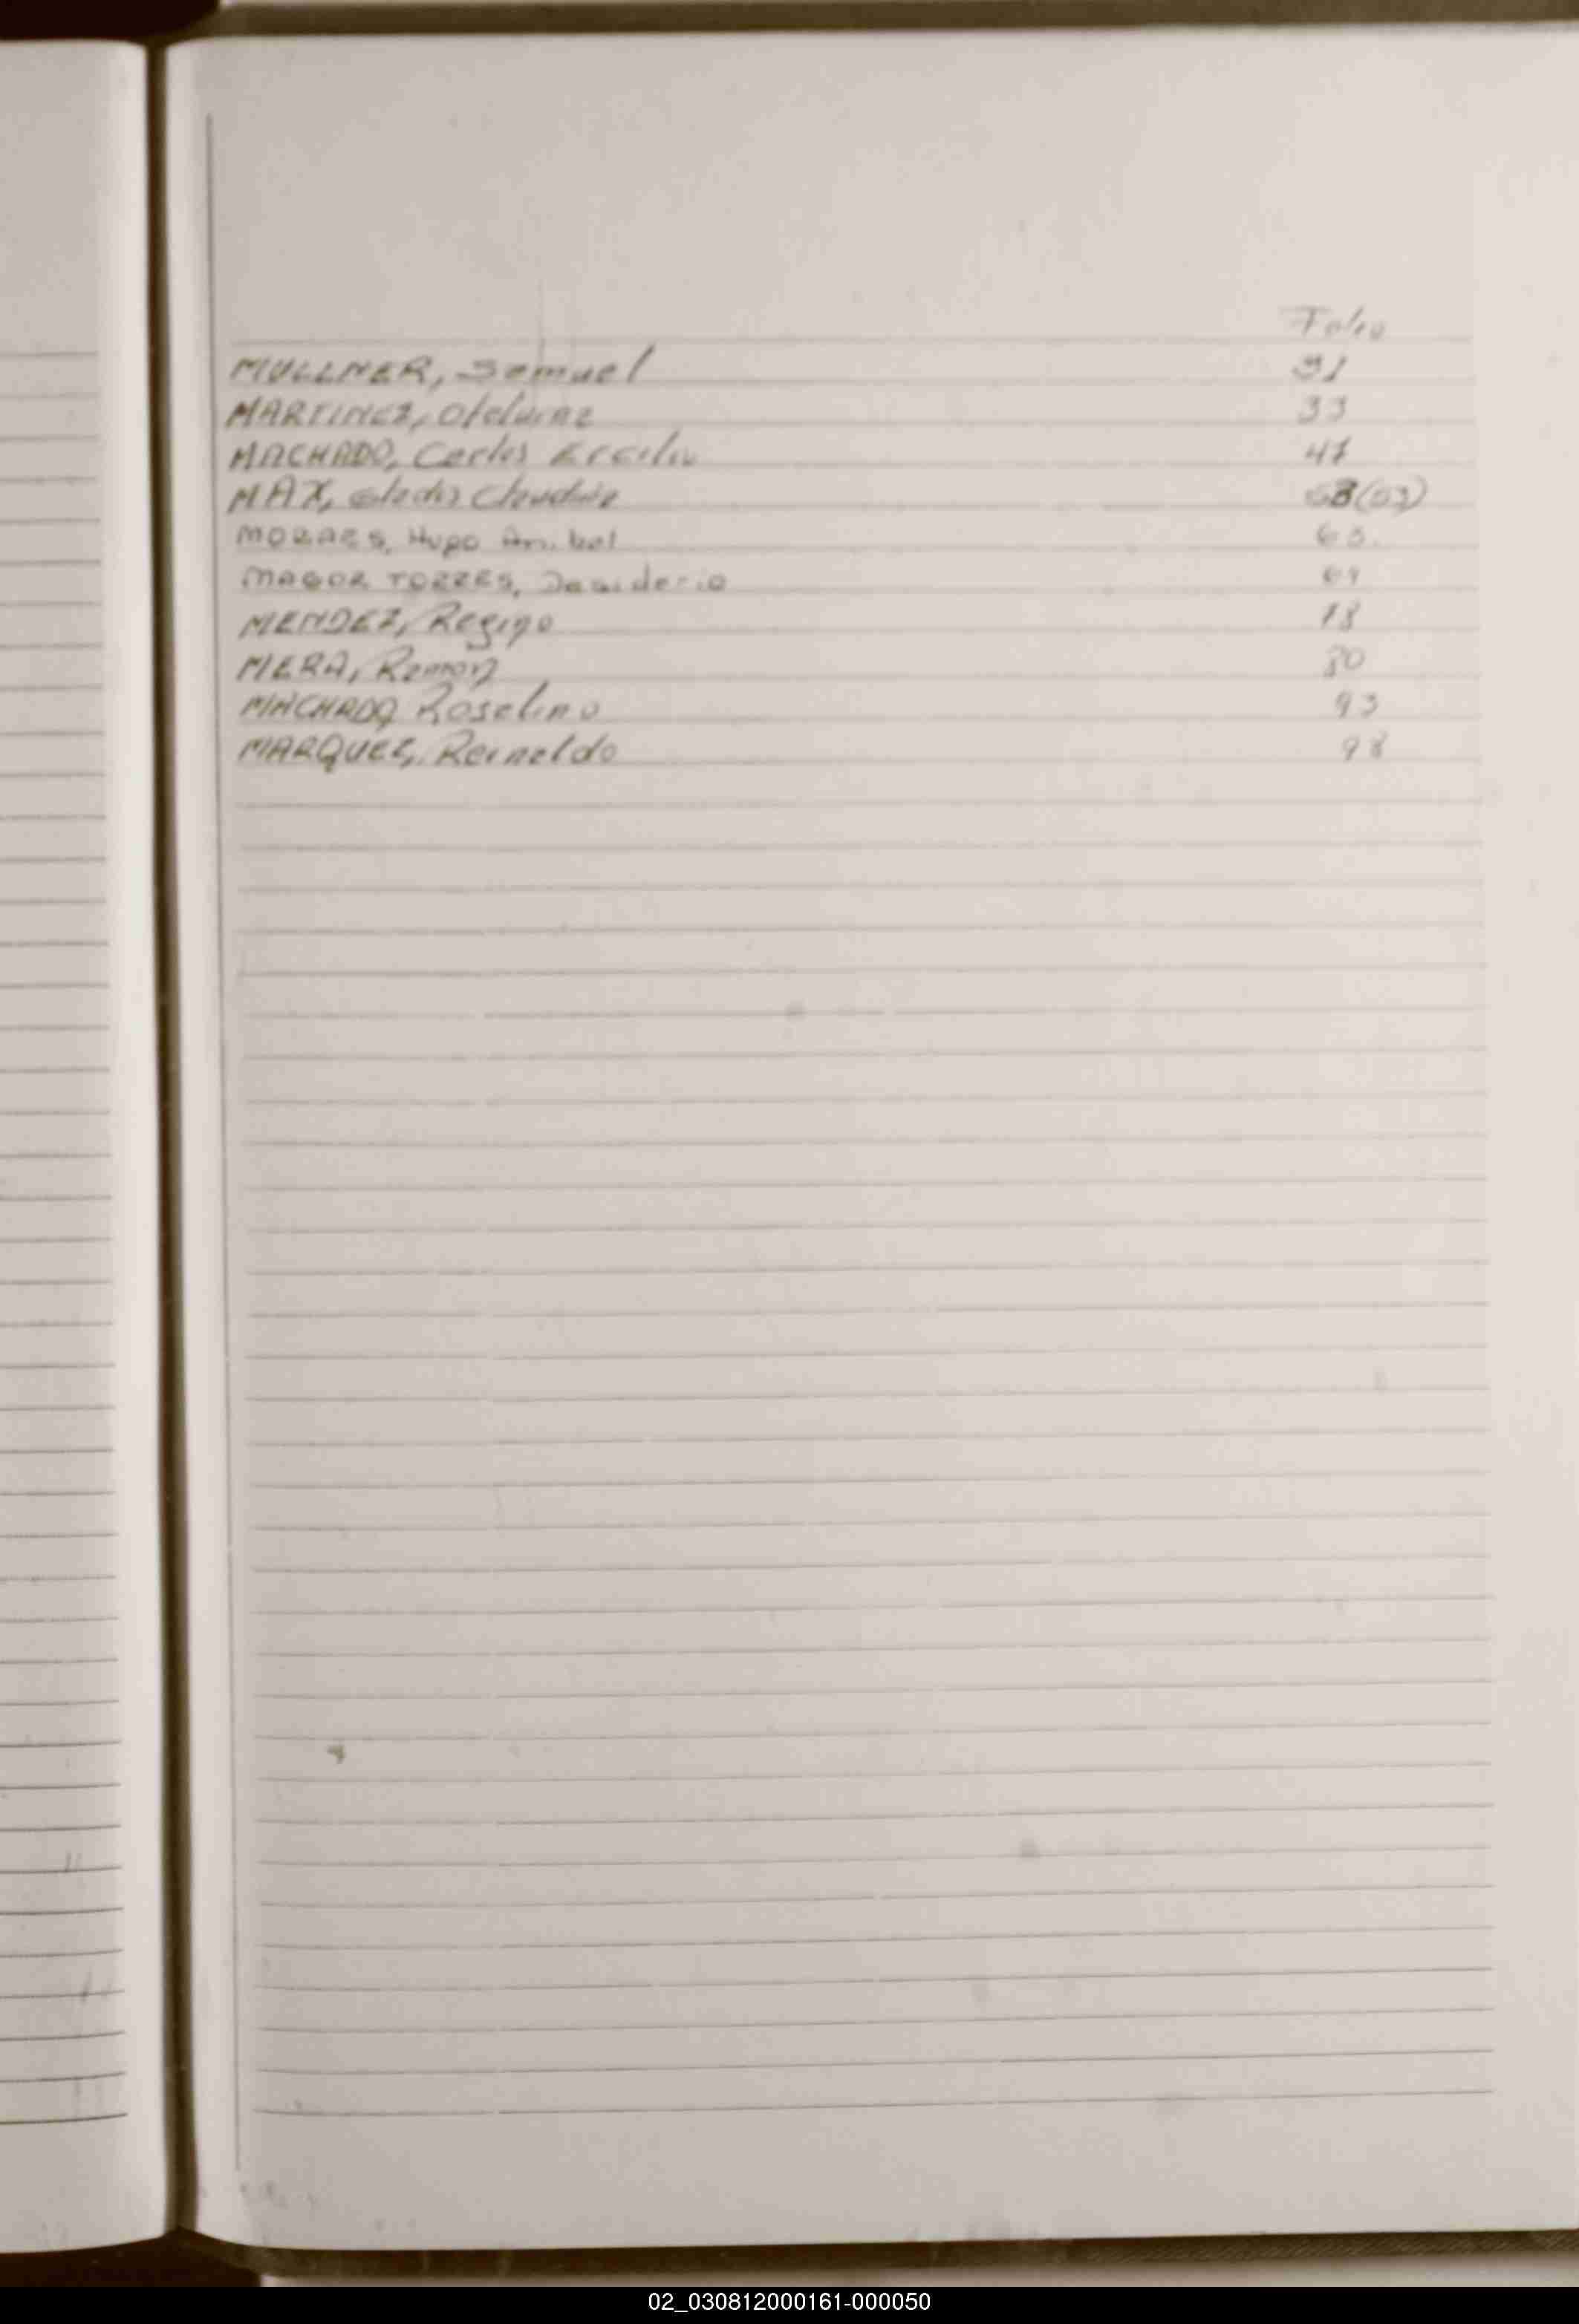 Folio
MULLNER, Samuel 31
MARTINEZ, 33
MACHADO, Carlos Ercilio 47
MAX, Gladis Claudia 63(03)
MORAES, Hugo Anibal 63.
MAGOR TORRES, Desiderio
MENDEZ, Regino 78
MERA, Ramon 80
MACHADO, Roselino 93
MARQUEZ, Reinaldo 98
02_030812000161-000050